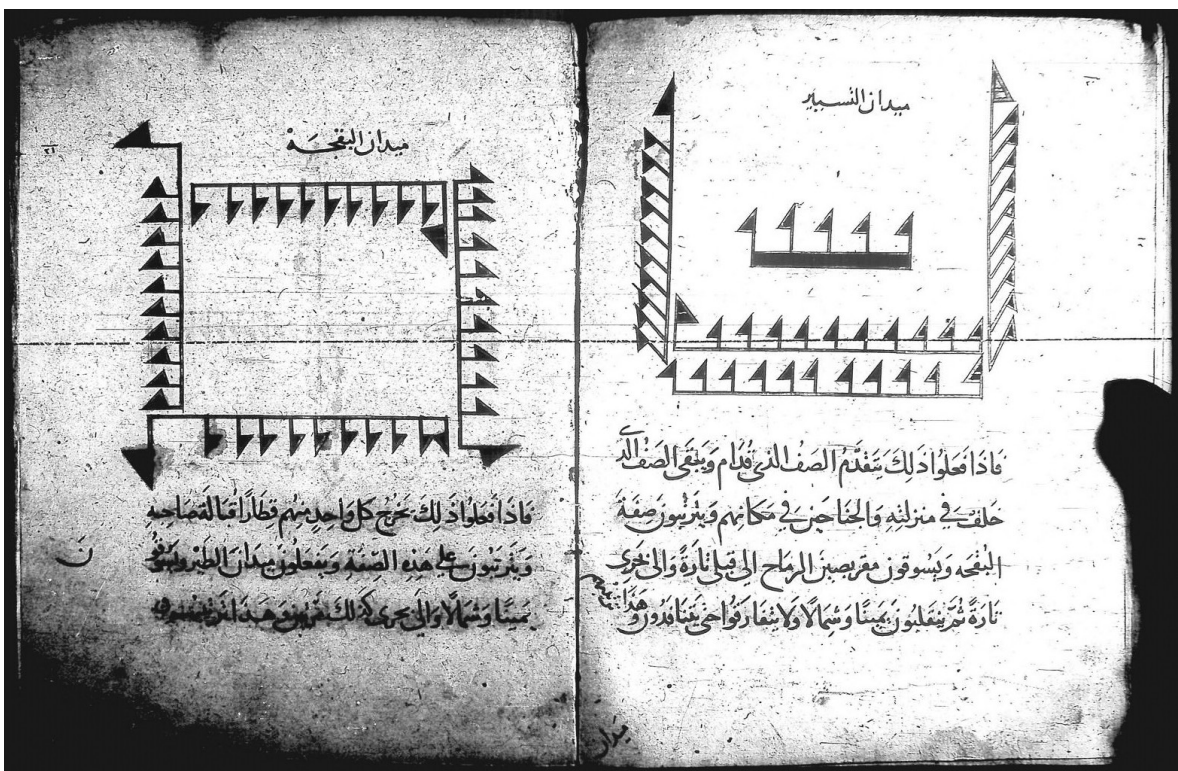 ميدان التسيير
فاذا فعلوا ذلك يتقدم الصف الذي قدام ويبقى الصف الذى
خلف في منزلته والجناحين في مكانهم ويترتبون صفة
البقجه ويسوقون مقربصين الرماح الى قبلى تارة والى بحرى
تارة ثم ينقلبون يمينا وشمالا ولا يتفارقوا حتى يتباددون وهذا
ميدان
ميدان البقجة
فاذا فعلوا ذلك يخرج كل واحد منهم قطارا قبالة صاحبه
ويترتبون على هذه الصفة ويعملون ميدان الطير ويسوقون
يمينا وشمالا والى بحرى كذلك